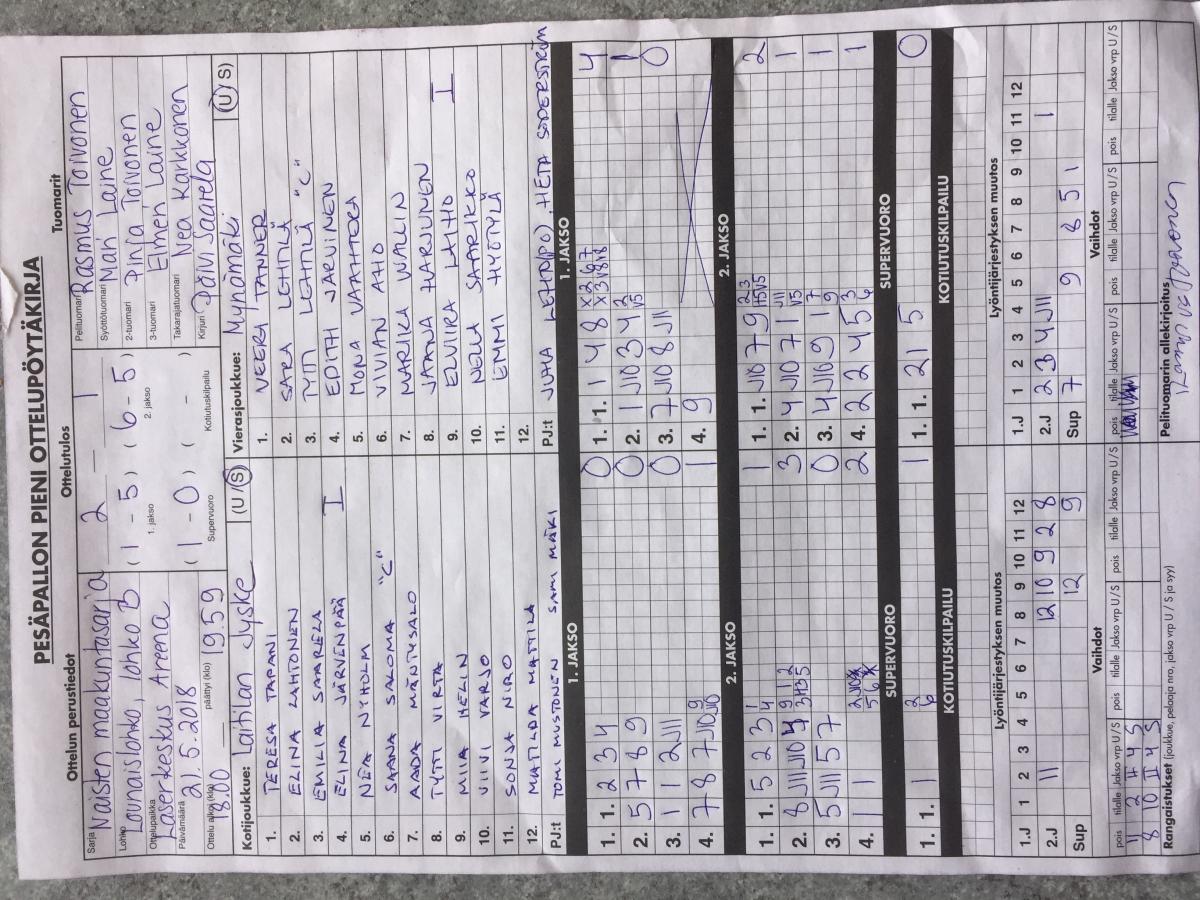 PESÄPALLON PIENI OTTELUPÖYTÄKIRJA
Ottelun perustiedot
Ottelutulos
Tuomarit
Sarja Naisten maakuntasarja
Lohko Lounaislohko, lohko B
Ottelupaikka Laserkeskus Areena
Päivämäärä 21.5.2018
Ottelu alkoi (klo) 18.10 päättyi (klo) 19.59
2 – 1
(1 - 5) (6 - 5)
1. jakso 2. jakso
(1 - 0) ( - )
Supervuoro Kotiutuskilpailu
Pelituomari Rasmus Toivonen
Syöttötuomari Mari Laine
2-tuomari Piria Toivonen
3-tuomari Elmeri Laine
Takarajatuomari Nea Karkkonen
Kirjuri Päivi Saarela
Kotijoukkue: Laitilan Jyske (U / S)
1. TERESA TAPANI
2. ELINA LAHTONEN
3. EMILIA SAARELA
4. ELINA JÄRVENPÄÄ I
5. NEA NYHOLM
6. SAANA SALOMA "C"
7. AADA MÄNTYSALO
8. TYTTI VIRTA
9. MIIA HELIN
10. VIIVI VARJO
11. SONJA NIRO
12. MATILDA MATTILA
PJ:t TOMI MUSTONEN SAMI MÄKI
Vierasjoukkue: Mynämäki (U / S)
1. VEERA TANNER
2. SARA LEHTILÄ
3. TYTTI LEHTILÄ "C"
4. EDITH JÄRVINEN
5. MONA VAAHTORA
6. VIVIAN AHO
7. MARIKA WALLIN
8. JAANA HARJUNEN
9. ELVIIRA LAIHO I
10. NELLI SAARIKKO
11. EMMI HYÖTYLÄ
12.
PJ:t JUHA LEHTO (PO), HETA SÖDERSTRÖM
1. JAKSO
1. 1. 2 3 4 0
2. 5 7 8 9 0
3. 1 1 2 JIII 0
4. 7 8 7 J10 9 J10 1
2. JAKSO
1. 1. 5 2 3 1 4 1
2. 8 JIII J10 4 9 1 2 3 H3 5 3
3. 5 JII 5 7 0
4. 1 1 2 J10 5 6 2
SUPERVUORO
1. 1. 1 2 6 1
KOTIUTUSKILPAILU
1. JAKSO
1. 1. 1 4 8 X 2 6 7 X 3 V8 V8 4
2. 1 J10 3 4 2 V5 1
3. 7 J10 8 JII 0
4. 9
2. JAKSO
1. 1. J10 7 9 2 3 H5 V5 2
2. 4 J10 7 1 JII V5 1
3. 4 J10 9 1 7 9 1
4. 2 2 4 5 3 6 1
SUPERVUORO
1. 1. 2 1 5 0
KOTIUTUSKILPAILU
Lyöntijärjestyksen muutos
1.J 1 2 3 4 5 6 7 8 9 10 11 12
2.J 11 12 10 9 2 8
Sup 12 9
Vaihdot
pois tilalle Jakso vrp U / S pois tilalle Jakso vrp U / S pois tilalle Jakso vrp U / S
11 2 II 4 S
8 10 II 4 S
Rangaistukset (joukkue, pelaaja nro, jakso vrp U / S ja syy)
Lyöntijärjestyksen muutos
1.J 1 2 3 4 5 6 7 8 9 10 11 12
2.J 2 3 4 JIII 1
Sup 7 9 8 5 1
Vaihdot
pois tilalle Jakso vrp U / S pois tilalle Jakso vrp U / S pois tilalle Jakso vrp U / S
Pelituomarin allekirjoitus